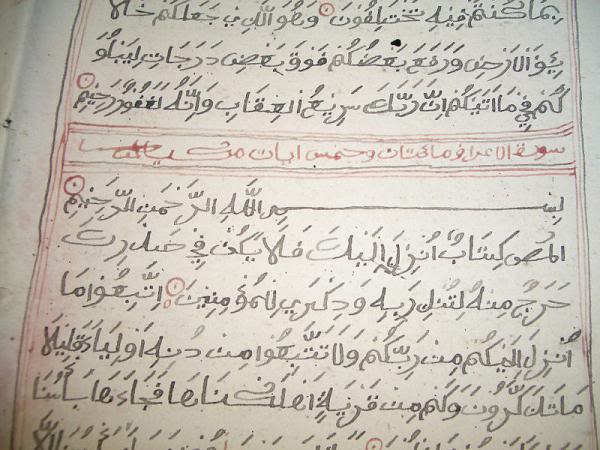 بِمَا كُنْتُمْ فِيهِ تَخْتَلِفُونَ وَهُوَ الَّذِي جَعَلَكُمْ خَلَا
ئِفَ الَارْضِ وَرَفَعَ بَعْضَكُمْ فَوْقَ بَعْضٍ دَرَجَاتٍ لِيَبْلُوَ
كُمْ فِي مَا اَتَيكُمْ اِنَّ رَبَّكَ سَرِيعُ الْعِقَابِ وَاِنَّهُ لَغَفُورٌ رَحِيمٌ
سورة الاعراف مائتان وخمس ايات
بِسْمِ اللَّهِ الرَّحْمَنِ الرَّحِيمِ
المص كِتَابٌ اُنْزِلَ اِلَيْكَ فَلَا يَكُنْ فِي صَدْرِكَ
حَرَجٌ مِنْهُ لِتُنْذِرَ بِهِ وَذِكْرَى لِلْمُؤْمِنِينَ اِتَّبِعُوا مَا
اُنْزِلَ اِلَيْكُمْ مِنْ رَبِّكُمْ وَلَا تَتَّبِعُوا مِنْ دُونِهِ اَوْلِيَاءَ قَلِيلًا
مَا تَذَّكَّرُونَ وَكَمْ مِنْ قَرْيَةٍ اَهْلَكْنَاهَا فَجَاءَهَا بَأْسُنَا